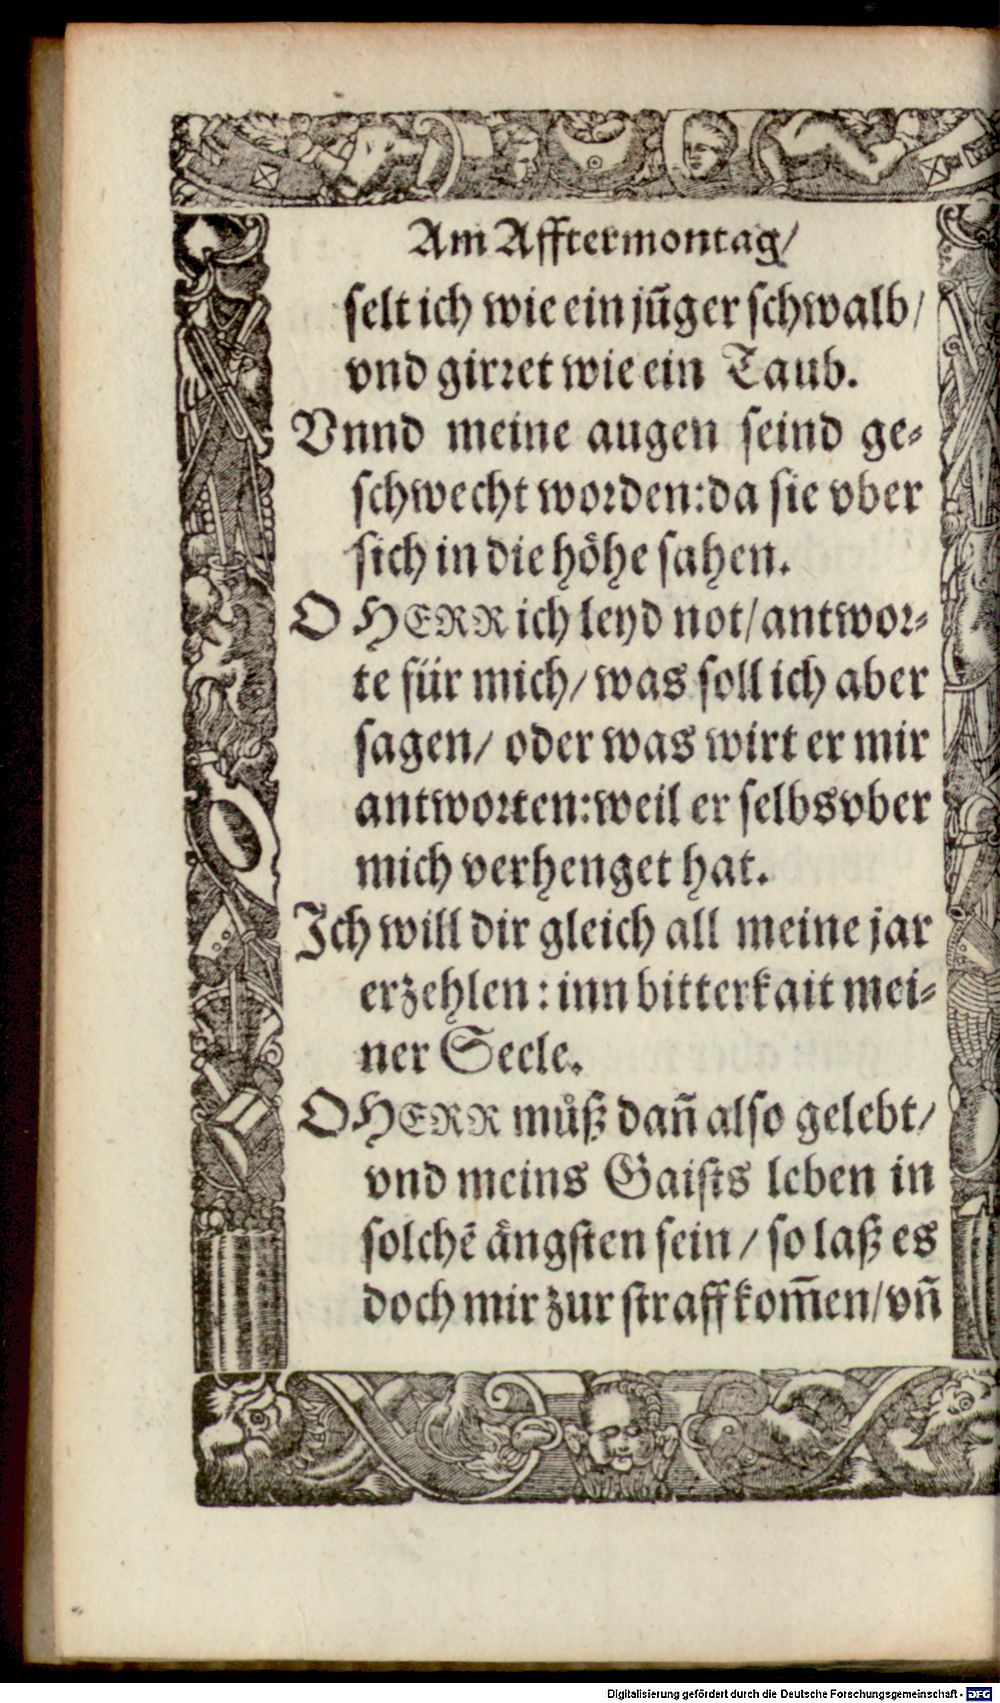 Am Afftermontag/
selt ich wie ein jūger schwalb/
vnd girret wie ein Taub.
Vnnd meine augen seind ge⸗
schwecht worden: da sie vber
sich in die höhe sahen.
O HERR ich leyd not/ antwor⸗
te für mich/ was soll ich aber
sagen/ oder was wirt er mir
antworten: weil er selbs vber
mich verhenget hat.
Ich will dir gleich all meine jar
erzehlen: inn bitterkait mei⸗
ner Seele.
O HERR můß dañ also gelebt/
vnd meins Gaists leben in
solchē ängsten sein/ so laß es
doch mir zur straff kom̄en/ vñ
Digitalisierung gefördert durch die Deutsche Forschungsgemeinschaft - DFG